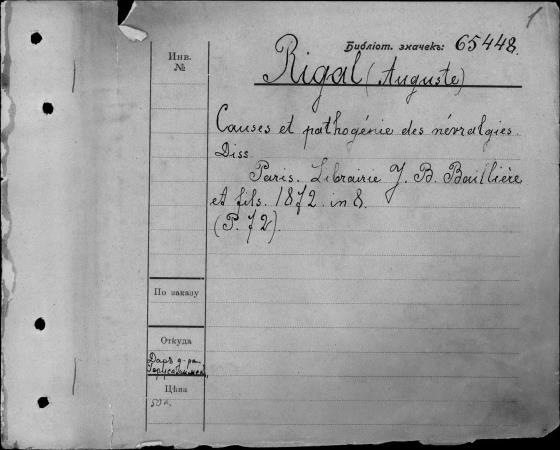 1
Библіот. значекъ: 65448.
Инв.
№
Rigal (Auguste)
Causes et pathogénie des névralgies.
Diss
Paris. Librairie J. B. Baillière
et fils. 1872. in 8.
(P. 72).
По заказу
Откуда
Даръ д-ра
Цѣна
50 к.